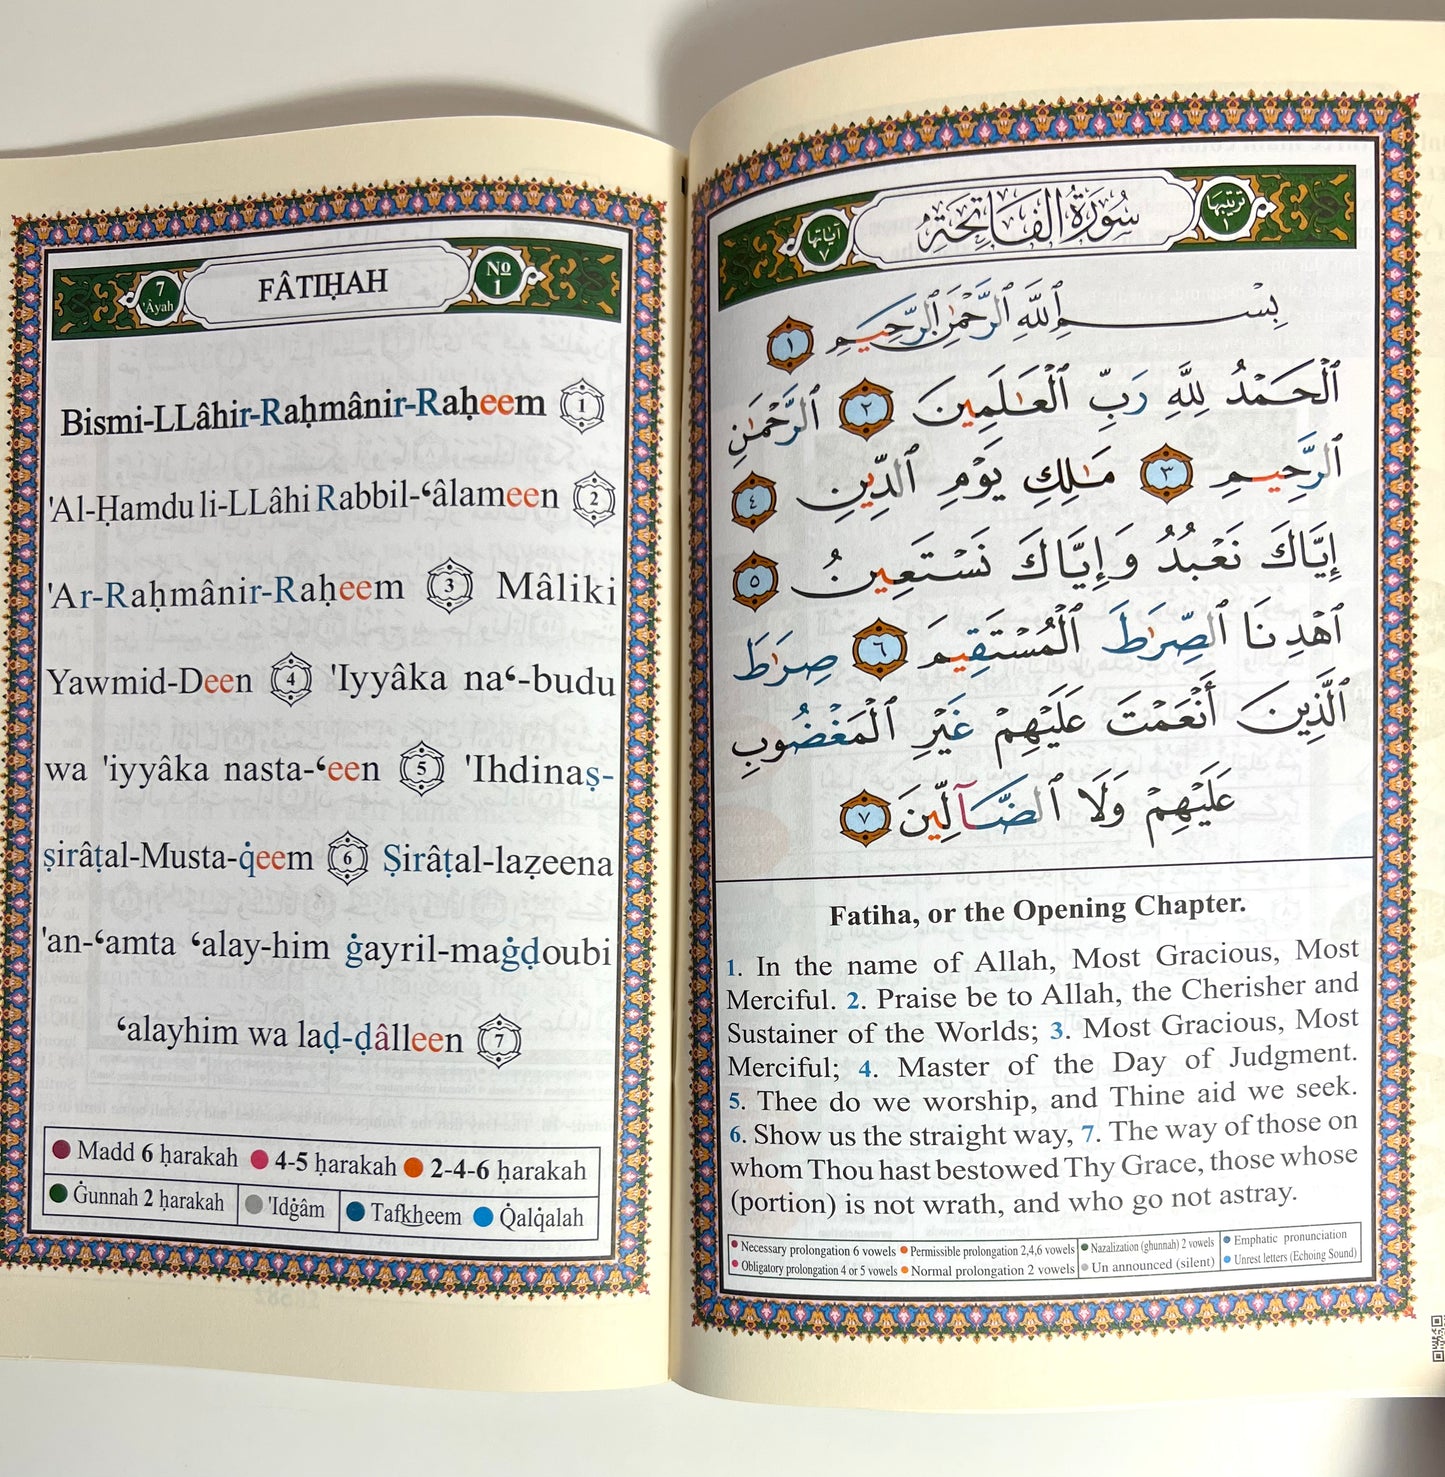 7
'Âyah
FÂTIḤAH
No
1
Bismi-LLâhir-Raḥmânir-Raḥeem 1
'Al-Ḥamdu li-LLâhi Rabbil-‘âlameen 2
'Ar-Raḥmânir-Raḥeem 3 Mâliki
Yawmid-Deen 4 'Iyyâka na‘-budu
wa 'iyyâka nasta-‘een 5 'Ihdinaṣ-
ṣirâṭal-Musta-q̇eem 6 Ṣirâṭal-laẓeena
'an-‘amta ‘alay-him ġayril-maġḍoubi
‘alayhim wa laḍ-ḍâlleen 7
Madd 6 ḥarakah 4-5 ḥarakah 2-4-6 ḥarakah
Ġunnah 2 ḥarakah 'Idġâm Tafkheem Q̇alq̇alah
ترتيبها
١
سُورَةُ الْفَاتِحَةِ
آياتها
٧
بِسْمِ ٱللَّهِ ٱلرَّحْمَٰنِ ٱلرَّحِيمِ ١
ٱلْحَمْدُ لِلَّهِ رَبِّ ٱلْعَٰلَمِينَ ٢ ٱلرَّحْمَٰنِ
ٱلرَّحِيمِ ٣ مَٰلِكِ يَوْمِ ٱلدِّينِ ٤
إِيَّاكَ نَعْبُدُ وَإِيَّاكَ نَسْتَعِينُ ٥
ٱهْدِنَا ٱلصِّرَٰطَ ٱلْمُسْتَقِيمَ ٦ صِرَٰطَ
ٱلَّذِينَ أَنْعَمْتَ عَلَيْهِمْ غَيْرِ ٱلْمَغْضُوبِ
عَلَيْهِمْ وَلَا ٱلضَّآلِّينَ ٧
Fatiha, or the Opening Chapter.
1. In the name of Allah, Most Gracious, Most
Merciful. 2. Praise be to Allah, the Cherisher and
Sustainer of the Worlds; 3. Most Gracious, Most
Merciful; 4. Master of the Day of Judgment.
5. Thee do we worship, and Thine aid we seek.
6. Show us the straight way, 7. The way of those on
whom Thou hast bestowed Thy Grace, those whose
(portion) is not wrath, and who go not astray.
Necessary prolongation 6 vowels Permissible prolongation 2,4,6 vowels Nazalization (ghunnah) 2 vowels Emphatic pronunciation
Obligatory prolongation 4 or 5 vowels Normal prolongation 2 vowels Un announced (silent) Unrest letters (Echoing Sound)